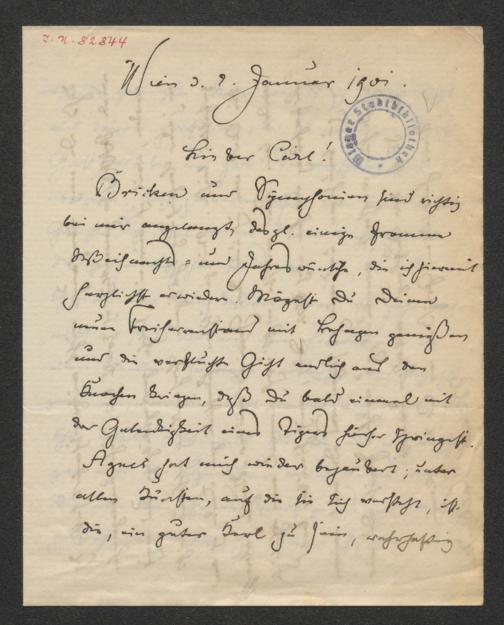 I. N. 82844
Wien d. 2. Januar 1901.
Wiener Stadtbibliothek
Lieber Carl!
Brücken und Symphonien sind richtig
bei mir angelangt, desgl. einige fromme
Weihnachts- und Jahreswünsche, die ich hiermit
herzlichst erwidere. Mögest Du Deinen
neuen Freiherrnstand mit Behagen genießen
und die verfluchte Gicht endlich aus den
Knochen kriegen, daß Du bald einmal mit
der Gelenkigkeit eines Tigers hieher springest.
Agnes hat mich wieder bezaubert; unter
allen Künsten, auf die sie sich versteht, ist
die, ein guter Kerl zu sein, wahrhaftig